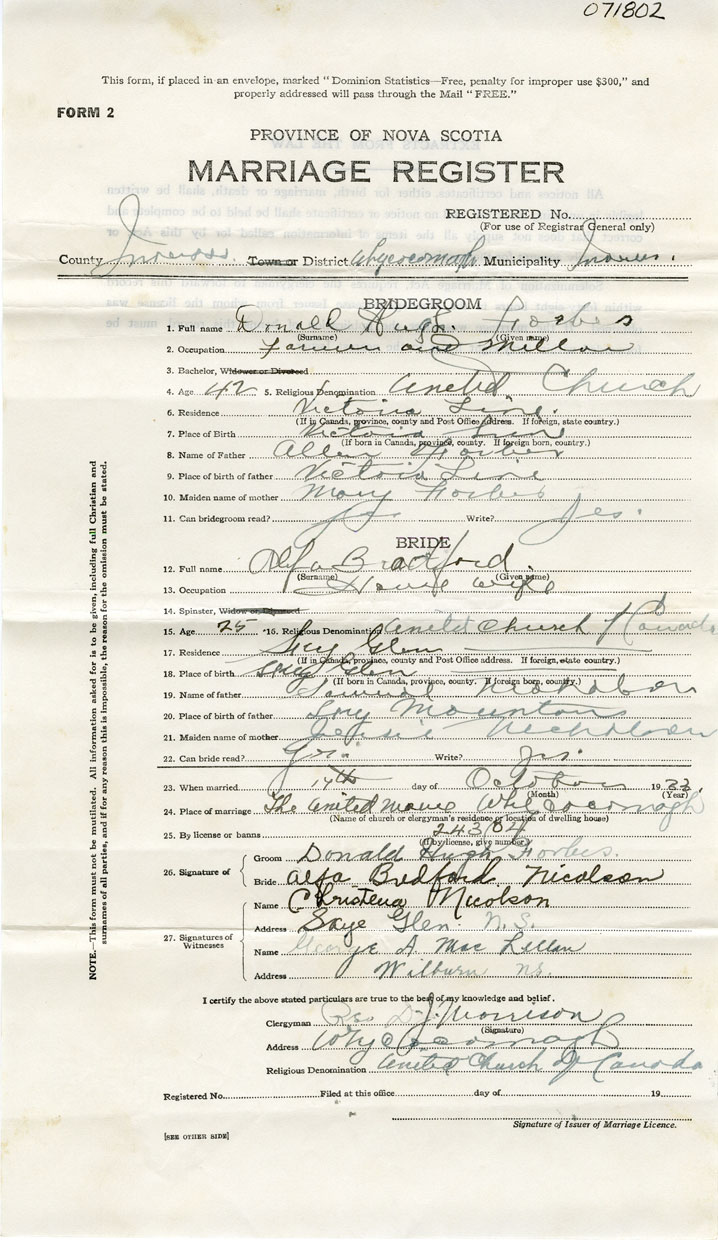 071802
This form, if placed in an envelope, marked "Dominion Statistics—Free, penalty for improper use $300," and
properly addressed will pass through the Mail "FREE."
FORM 2
PROVINCE OF NOVA SCOTIA
MARRIAGE REGISTER
REGISTERED No.
(For use of Registrar General only)
County Inverness Town or District Whycocomagh Municipality Inverness.
BRIDEGROOM
1. Full name Donald Hugh Forbes
(Surname) (Given name)
2. Occupation farmer and Miller
3. Bachelor, Widower or Divorced
4. Age 42 5. Religious Denomination United Church
6. Residence Victoria Line.
(If in Canada, province, county and Post Office address. If foreign, state country.)
7. Place of Birth Victoria Line
(If born in Canada, province, county. If foreign born, country.)
8. Name of Father Allen Forbes
9. Place of birth of father Victoria Line
10. Maiden name of mother Mary Forbes
11. Can bridegroom read? yes Write? yes.
BRIDE
12. Full name Alfa Bradford.
(Surname) (Given name)
13. Occupation House wife
14. Spinster, Widow or Divorced
15. Age 25 16. Religious Denomination United Church of Canada
17. Residence Skye Glen
(If in Canada, province, county and Post Office address. If foreign, state country.)
18. Place of birth Skye Glen
(If born in Canada, province, county. If foreign born, country.)
19. Name of father Samuel Nicholson
20. Place of birth of father Mountain
21. Maiden name of mother Jessie Nicholson
22. Can bride read? yes. Write? yes.
23. When married 14th day of October 1933.
(Month) (Year)
24. Place of marriage The United Manse Whycocomagh
(Name of church or clergyman's residence or location of dwelling house)
25. By license or banns 24384
(If by license, give number)
26. Signature of Groom Donald Hugh Forbes.
Bride Alfa Bedford Nicolson
27. Signatures of Witnesses Name Christena Nicolson
Address Skye Glen N.S.
Name George A. Mac Lellan
Address Wilburn NS.
I certify the above stated particulars are true to the best of my knowledge and belief.
Clergyman Rev D. J. Morrison
(Signature)
Address Whycocomagh
Religious Denomination United Church of Canada
Registered No. Filed at this office day of 19
Signature of Issuer of Marriage Licence.
[SEE OTHER SIDE]
NOTE.—This form must not be mutilated. All information asked for is to be given, including full Christian and
surnames of all parties, and if for any reason this is impossible, the reason for the omission must be stated.